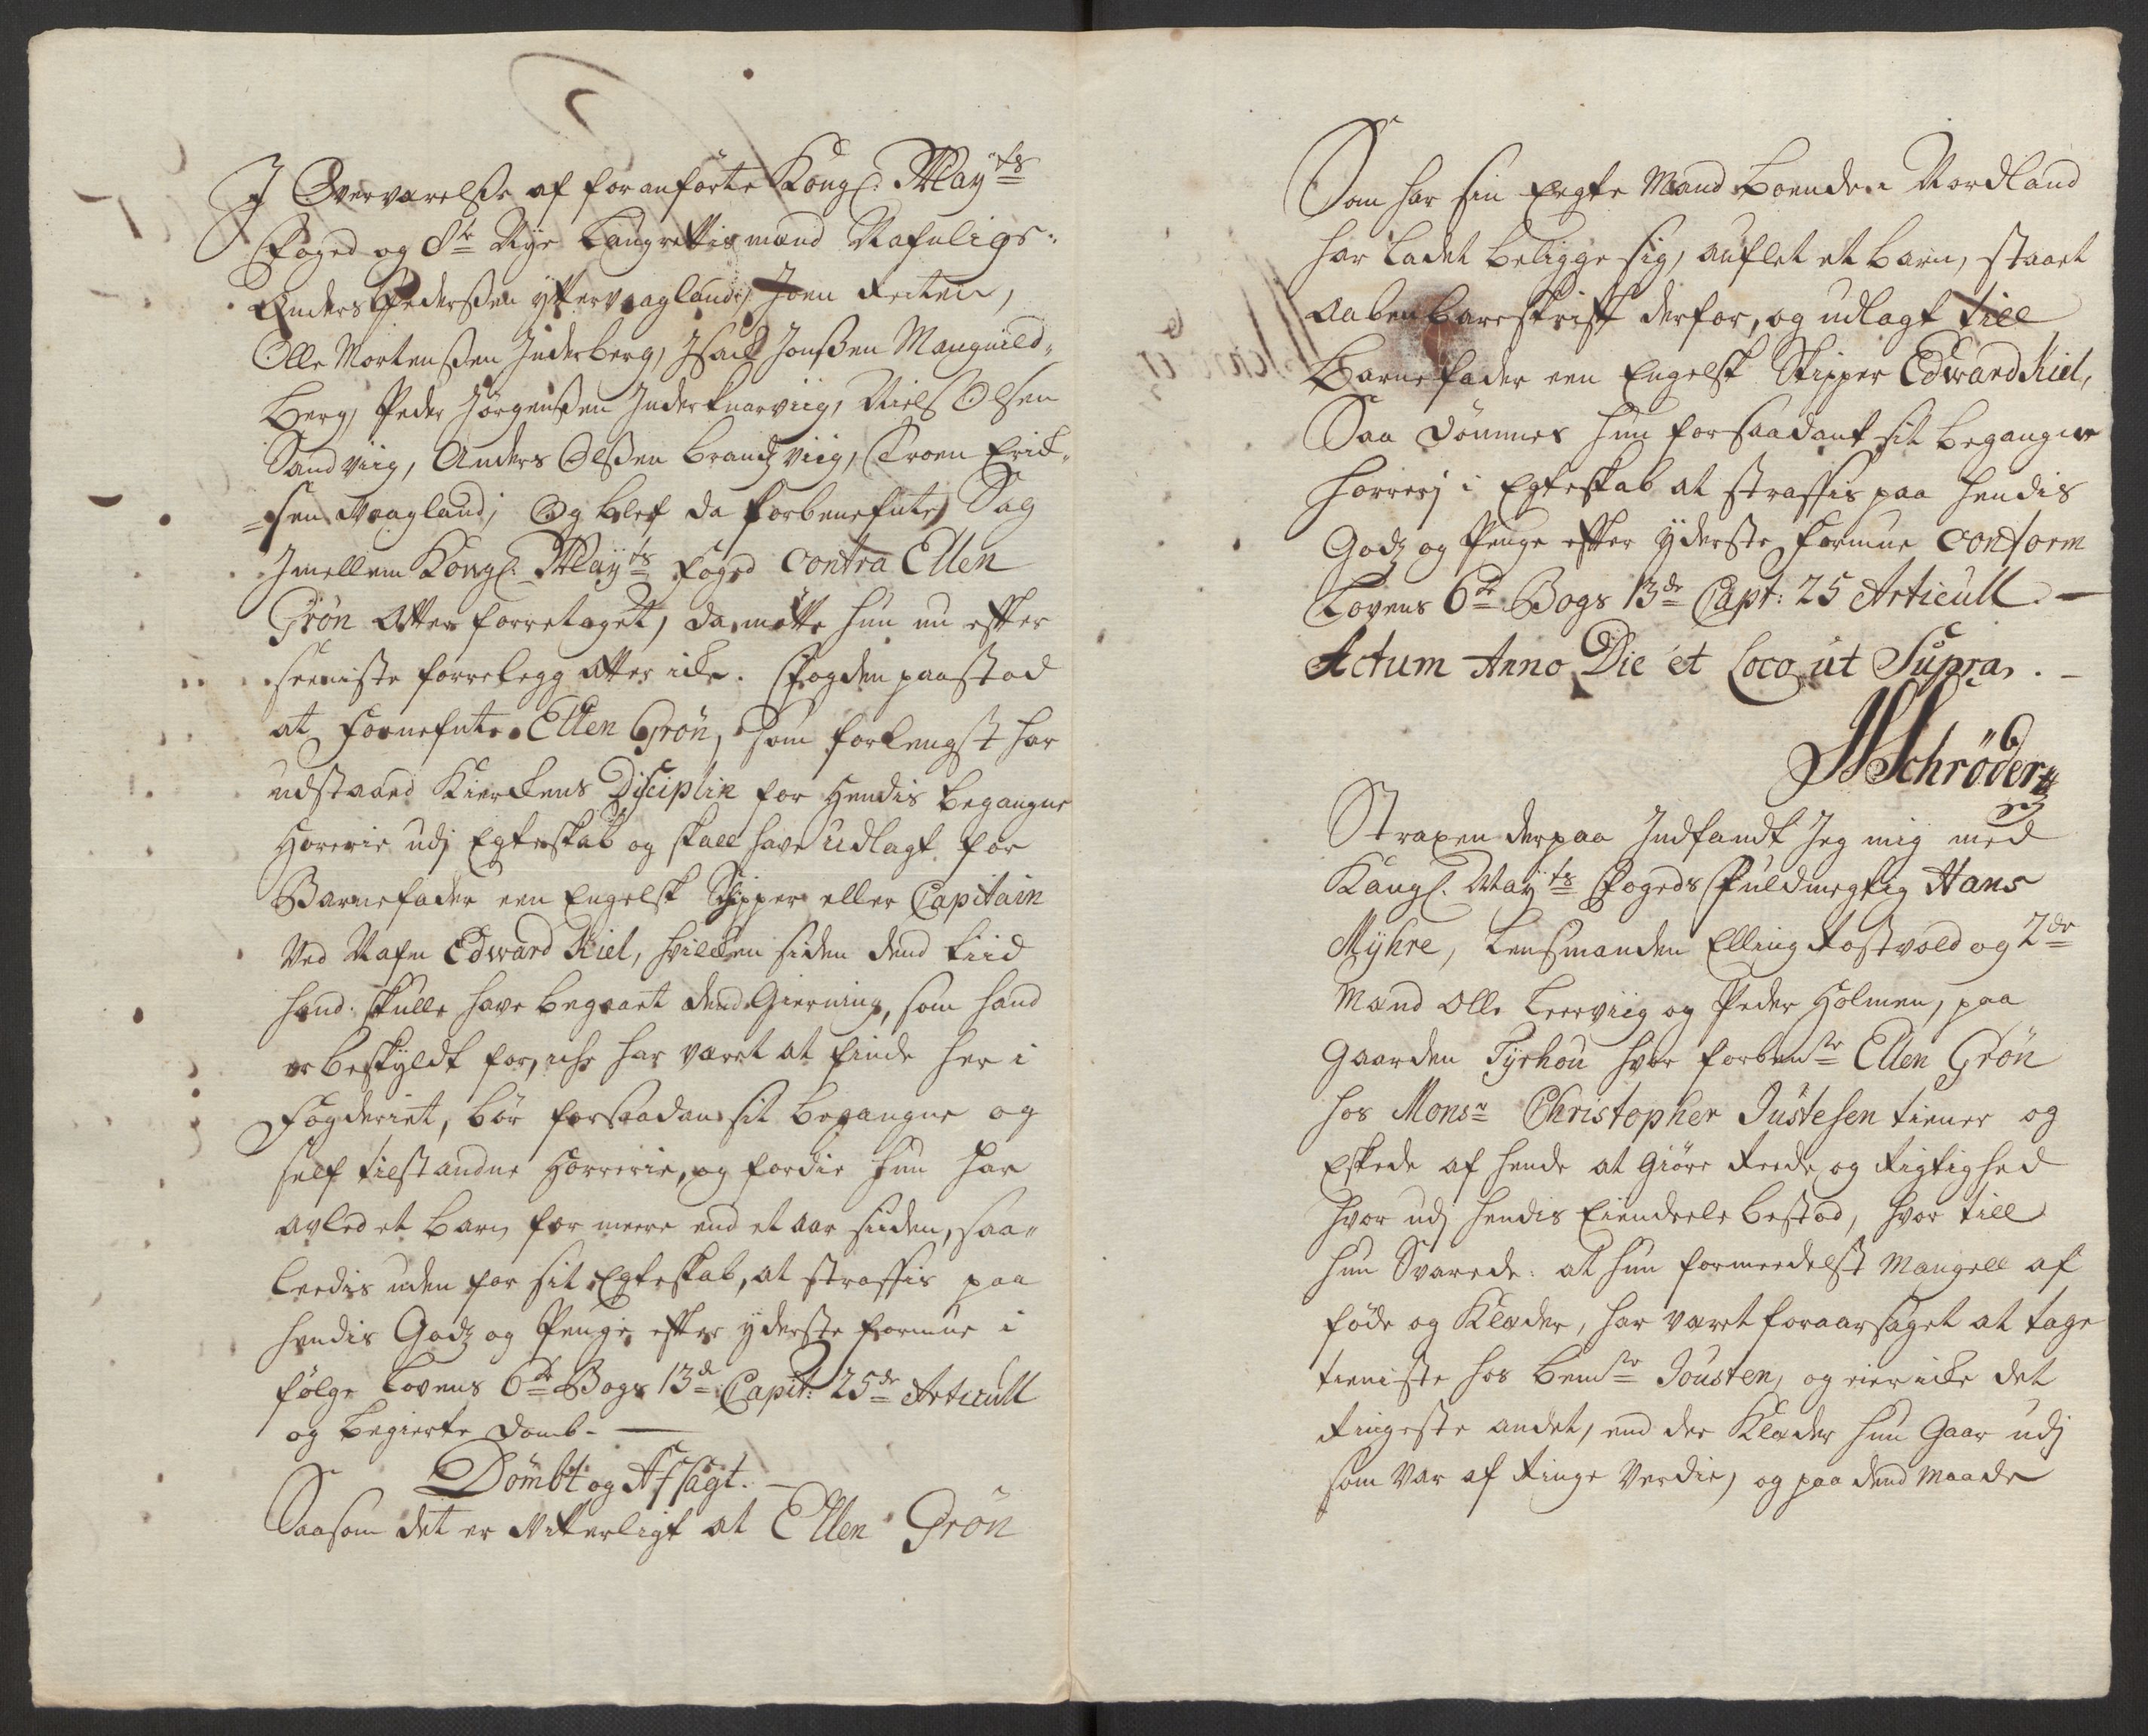 I Overværelse af foranförte Kongl: Mayts
Foged og 8te Nye Laugrettismænd Nafnligs:
Anders Pedersen yttervaagland, Joen Reiten,
Olle Mortensen Inderberg, Isach Jonssen Mangnild-
berg, Peder Jörgensen Inderknarviig, Niels Olsen
Sandviig, Anders Olsen brandzviig, Troen Erich-
=sen Vaagland; Og blef da forbenefnte Sag
Imellem Kongl: Mayts foged contra Ellen
Grön atter forretaget, da mötte hun nu efter
seeniste forrelegg atter icke. Fogden paastod
at fornefnte Ellen Grön, som forlengst har
udstaaed Kierckens Disciplin for Hendis begangne
Horerie udj Egteskab og skall have udlagt for
Barnefader een Engelsk Schipper eller Capitain
Ved Nafn Edward Kiel, hvilcken siden dend tiid
hand skulle have begaaet dend Gierning, som hand
er beskyldt for, iche har været at finde her i
Fogderiet, bör for saadan sit begangne og
self tilstandne Horrerie, og fordie hun har
avled et barn for meere end et aar siden, saa-
leedis uden for sit Egteskab, at straffis paa
hendis Godz og Penge efter yderste formue i
fölge Lovens 6te Bogs 13de Capit: 25de Articull
og begierte domb. —
Dömbt og Afsagt. —
Saasom det er vitterligt at Ellen Grön
Som har sin Egte Mand boende i Nordland
har ladet beligge sig, auflet et barn, staaet
aabenbare skrift derfor, og udlagt till
Barnefader een Engelsk Skipper Edward Kiel,
Saa dömmes hun for saadant sit begangne
horrerj i Egteskab at straffis paa hendis
Godz og Penge efter yderste formue conform
Lovens 6te Bogs 13de Capt: 25 Articull. —
Actum Anno Die et Loco ut Supra. —
Schröder
Straxen derpaa Indfandt Jeg mig med
Kaangl. Mayts Fogeds Fuldmegtig Hans
Myhre, Lensmanden Elling Rostvold og 2de
Mænd Olle Leerviig og Peder Holmen, paa
gaarden Tyrhou hvor forbente Ellen Grön
hos Monsr Christopher Justesen tiener og
Eskede af hende at giöre Reede og Rigtighed
hvor udj hendis Eiendeele bestod, hvor till
hun Svarede: at hun formeedelst Mangell af
föde og Klæder, har været foraarsaget at tage
tieniste hos bemte Jousten, og eier icke det
Ringeste andet, end der Klæder hun gaar udj
som var af Ringe Verdie, og paa dend maade